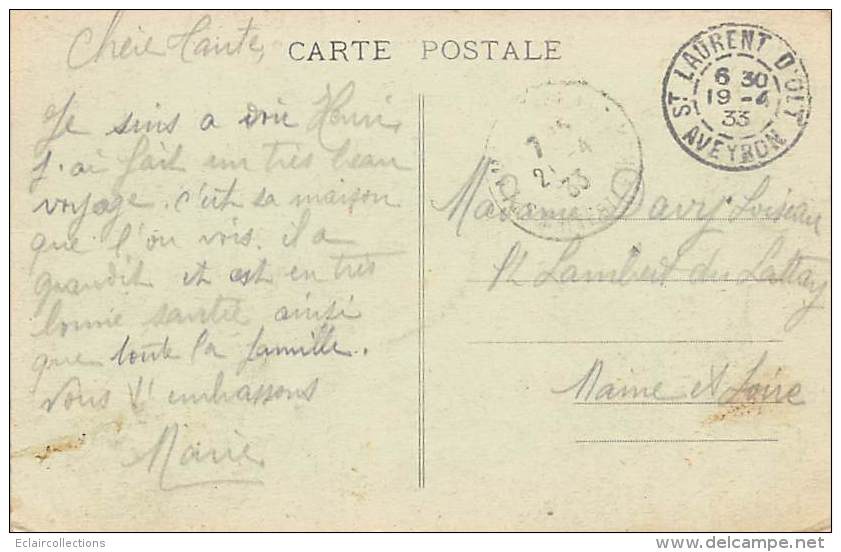 Chère Tante,
CARTE POSTALE
ST LAURENT D'OLT
6 30
19 -4
33
AVEYRON
7
2 -4
33
Je suis a voir Henri
j'ai fait un très beau
voyage. c'est sa maison
que l'on vois. il a
grandit et est en très
bonne santée ainsi
que toute la famille.
Vous t'embrassons
Marie
Madame Davy Loiseau
St Lambert du Lattay
Maine et Loire
Eclaircollections
www.delcampe.net